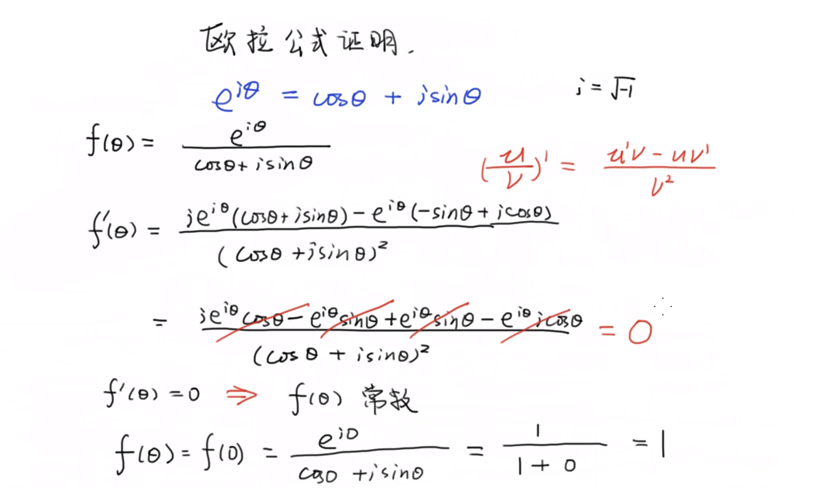 欧拉公式证明.
e^{iθ} = cosθ + isinθ    i = √-1
f(θ) = e^{iθ} / (cosθ + isinθ)    (u/v)' = (u'v - uv') / v²
f'(θ) = [ie^{iθ}(cosθ + isinθ) - e^{iθ}(-sinθ + icosθ)] / (cosθ + isinθ)²
= [ie^{iθ}cosθ - e^{iθ}sinθ + e^{iθ}sinθ - e^{iθ}icosθ] / (cosθ + isinθ)² = 0
f'(θ) = 0 ⇒ f(θ) 常数
f(θ) = f(0) = e^{i0} / (cos0 + isin0) = 1 / (1 + 0) = 1